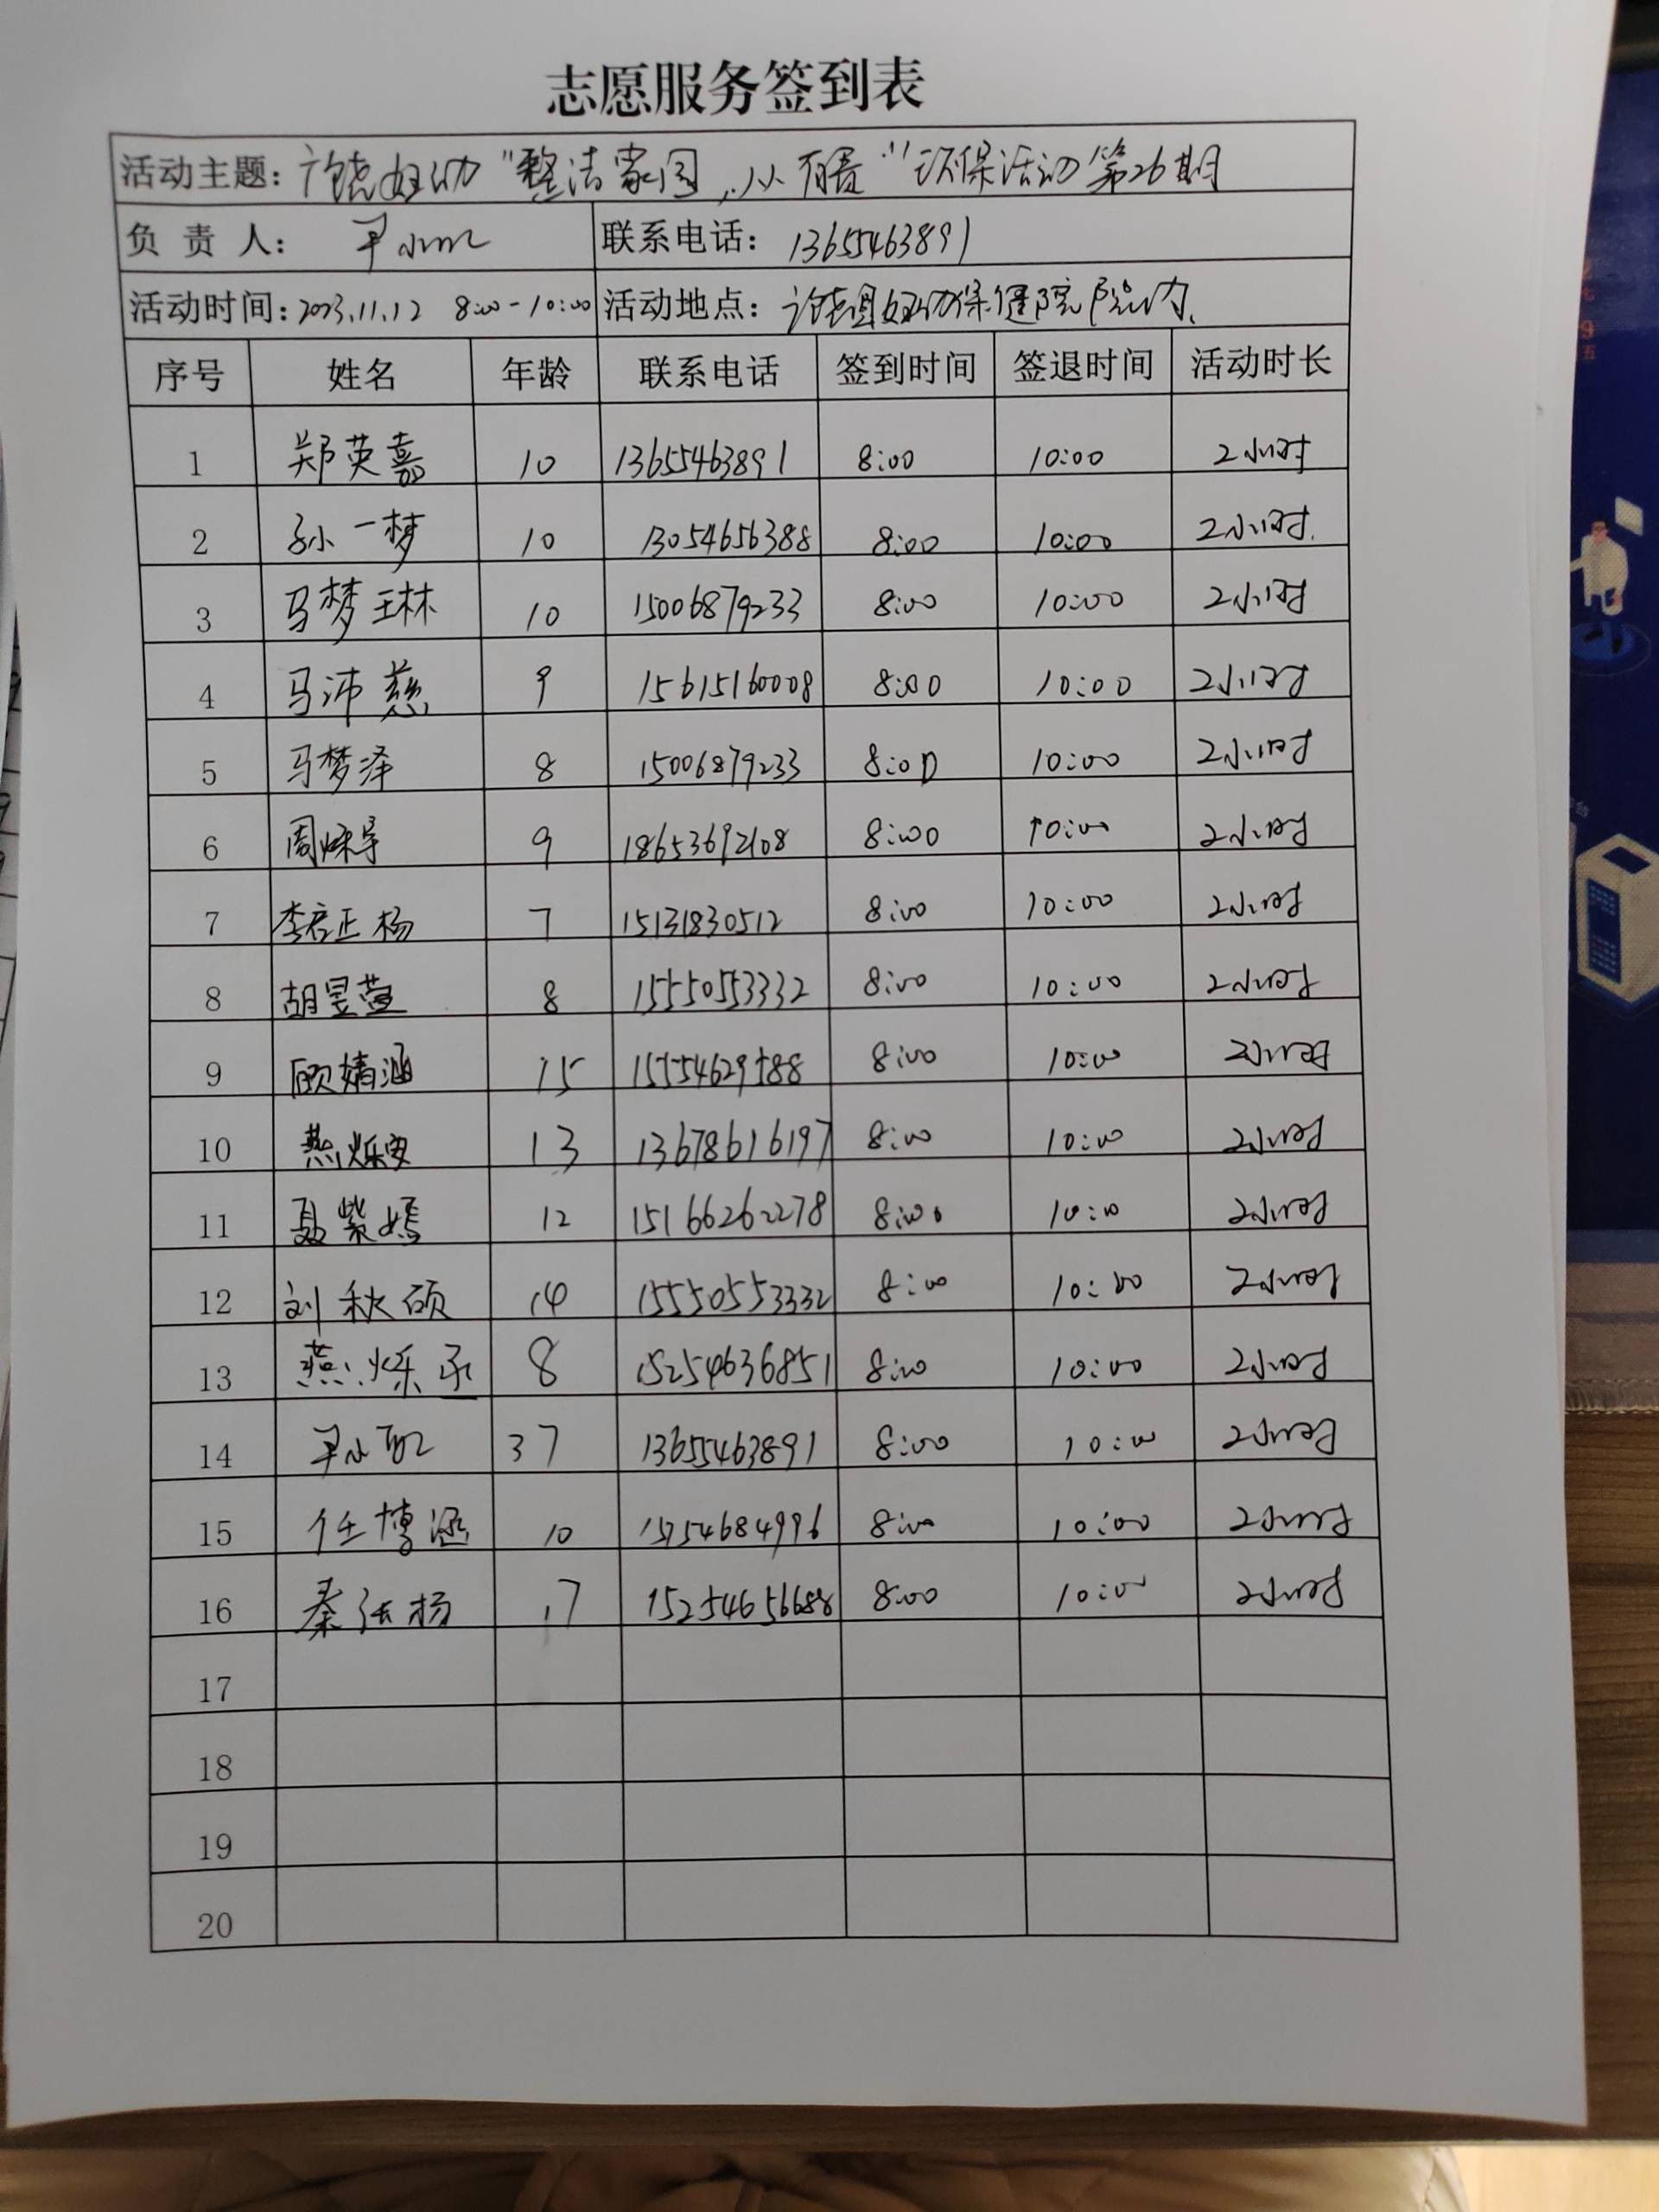 志愿服务签到表
活动主题: 广饶妇幼"整洁家园,从我""环保活动第26期
负 责 人: 联系电话: 13655463891
活动时间: 2023.11.12 8:00-10:00 活动地点: 广饶县妇幼保健院院内
序号 姓名 年龄 联系电话 签到时间 签退时间 活动时长
1 郑英嘉 10 13655463891 8:00 10:00 2小时
2 孙一梦 10 13054656388 8:00 10:00 2小时.
3 马梦琳 10 15006879233 8:00 10:00 2小时
4 马沛慈 9 15615160008 8:00 10:00 2小时
5 马梦泽 8 15006879233 8:00 10:00 2小时
6 周 9 18653692108 8:00 10:00 2小时
7 李 正杨 7 15131830512 8:00 10:00 2小时
8 胡昱萱 8 15550553332 8:00 10:00 2小时
9 顾婧涵 15 15554629588 8:00 10:00 2小时
10 燕烁安 13 13678616197 8:00 10:00 2小时
11 聂紫嫣 12 15166262278 8:00 10:00 2小时
12 刘秋硕 14 15550553332 8:00 10:00 2小时
13 燕烁承 8 15254636851 8:00 10:00 2小时
14 37 13655463891 8:00 10:00 2小时
15 任博涵 10 8:00 10:00 2小时
16 秦 杨 17 15254656688 8:00 10:00 2小时
17
18
19
20